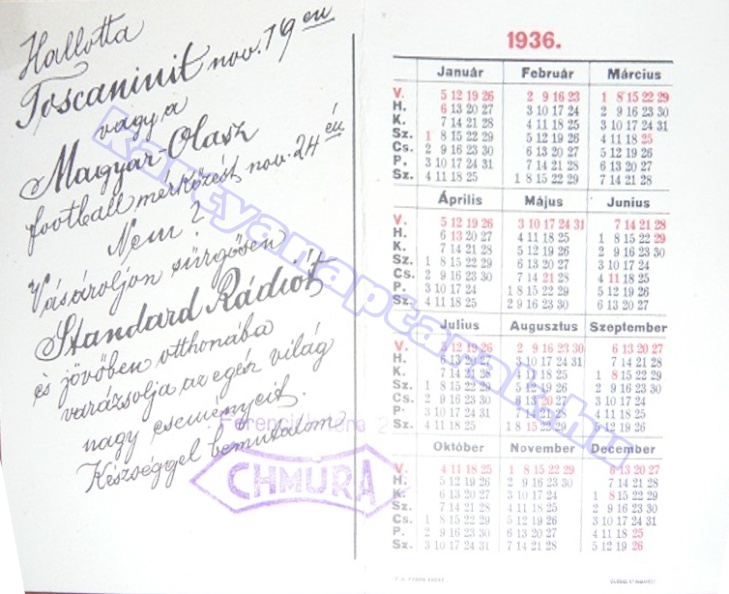 Hallotta
Toscaninit nov. 19 én
vagy a
Magyar-Olasz
football mérkőzést nov. 24 én
Nem?
Vásároljon sürgősen
Standard Rádiót
és jövőben otthonába
varázsolja az egész világ
nagy eseményeit.
Készséggel bemutatom
CHMURA
kartyanaptarak.hu
1936.
Január Február Március
V. 5 12 19 26 2 9 16 23 1 8 15 22 29
H. 6 13 20 27 3 10 17 24 2 9 16 23 30
K. 7 14 21 28 4 11 18 25 3 10 17 24 31
Sz. 1 8 15 22 29 5 12 19 26 4 11 18 25
Cs. 2 9 16 23 30 6 13 20 27 5 12 19 26
P. 3 10 17 24 31 7 14 21 28 6 13 20 27
Sz. 4 11 18 25 1 8 15 22 29 7 14 21 28
Április Május Junius
V. 5 12 19 26 3 10 17 24 31 7 14 21 28
H. 6 13 20 27 4 11 18 25 1 8 15 22 29
K. 7 14 21 28 5 12 19 26 2 9 16 23 30
Sz. 1 8 15 22 29 6 13 20 27 3 10 17 24
Cs. 2 9 16 23 30 7 14 21 28 4 11 18 25
P. 3 10 17 24 1 8 15 22 29 5 12 19 26
Sz. 4 11 18 25 2 9 16 23 30 6 13 20 27
Julius Augusztus Szeptember
V. 5 12 19 26 2 9 16 23 30 6 13 20 27
H. 6 13 20 27 3 10 17 24 31 7 14 21 28
K. 7 14 21 28 4 11 18 25 1 8 15 22 29
Sz. 1 8 15 22 29 5 12 19 26 2 9 16 23 30
Cs. 2 9 16 23 30 6 13 20 27 3 10 17 24
P. 3 10 17 24 31 7 14 21 28 4 11 18 25
Sz. 4 11 18 25 1 8 15 22 29 5 12 19 26
Október November December
V. 4 11 18 25 1 8 15 22 29 6 13 20 27
H. 5 12 19 26 2 9 16 23 30 7 14 21 28
K. 6 13 20 27 3 10 17 24 1 8 15 22 29
Sz. 7 14 21 28 4 11 18 25 2 9 16 23 30
Cs. 1 8 15 22 29 5 12 19 26 3 10 17 24 31
P. 2 9 16 23 30 6 13 20 27 4 11 18 25
Sz. 3 10 17 24 31 7 14 21 28 5 12 19 26